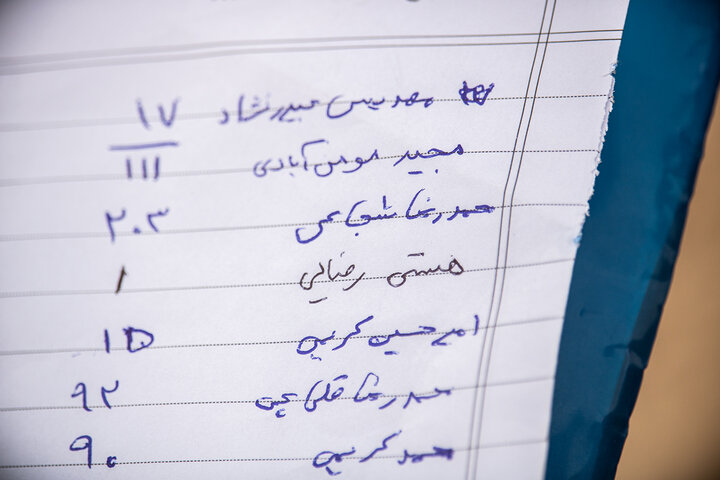 مهدیس حیدرنشاد ۱۷
مجید مومن آبادی ۱۱۱
حمدرضا شجاعی ۲۰۳
هستی رضائی ۱
امیرحسین کریمی ۱۵
حمدرضا ۹۲
حمد کریمی ۹۰